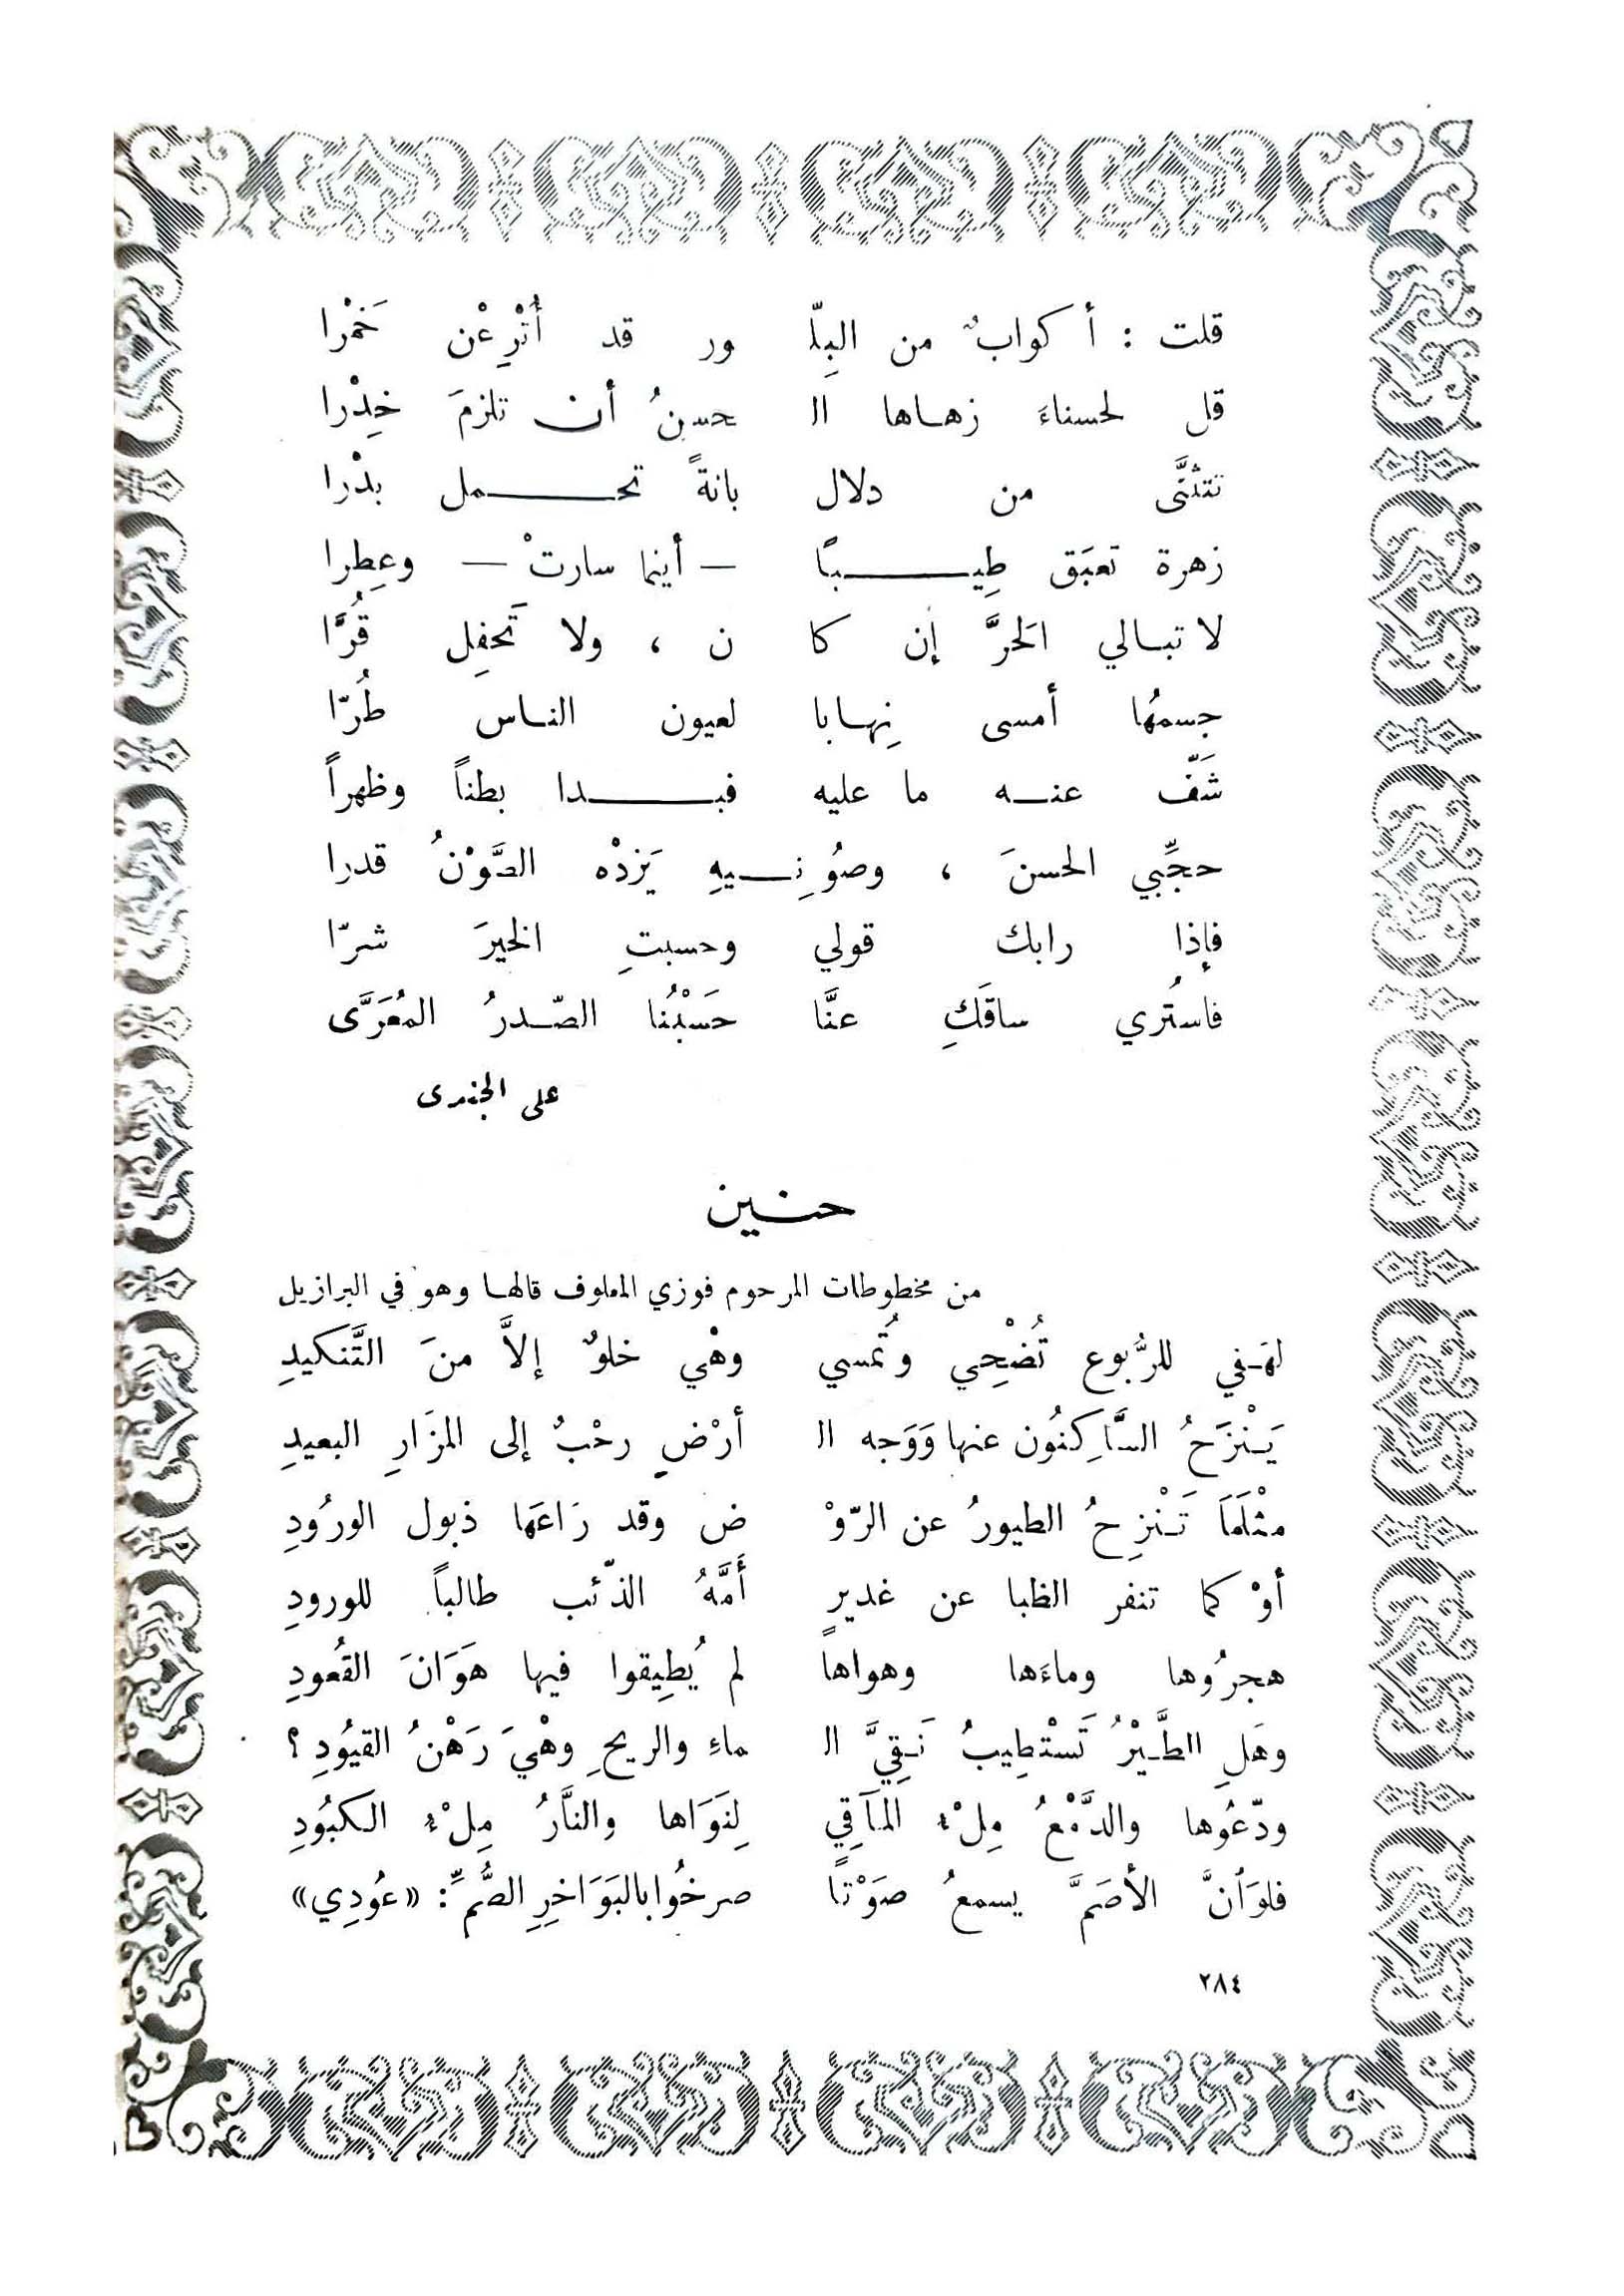 قلت : أكوابٌ من البِلّ ور قد أُتْرِعْن خَمْرا
قل لحسناءَ زهاها الـ حسنُ أن تلزمَ خِدْرا
تتثنَّى من دلال بانةً تحمل بدْرا
زهرة تعبَق طِيبًا — أينما سارتْ — وعِطرا
لا تبالي الحَرَّ إن كا ن ، ولا تَحفِل قُرَّا
جسمُها أمسى نِهابا لعيون الناس طُرّا
شَفّ عنه ما عليه فبدا بطناً وظهراً
حجِّبي الحسنَ ، وصُونِيهِ يَزدْه الصَّوْنُ قدرا
فإذا رابك قولي وحسبتِ الخيرَ شرّا
فاستُري ساقَكِ عنَّا حَسْبُنا الصّدرُ المُعَرَّى
على الجندى
حنين
من مخطوطات المرحوم فوزي المعلوف قالها وهو في البرازيل
لهَفي للرُّبوع تُضْحِي وتُمسي وهْي خلوٌ إلاَّ منَ التَّنكيدِ
يَنْزَحُ السَّاكِنُون عنها وَوَجه الـ أرْضِ رحْبٌ إلى المزَارِ البعيدِ
مثْلَمَا تَنْزِحُ الطيورُ عن الرّوْ ض وقد رَاعَها ذبول الورُودِ
أوْ كما تنفر الظبا عن غديرٍ أَمَّهُ الذّئب طالباً للورودِ
هجرُوها وماءَها وهواها لم يُطِيقوا فيها هوَانَ القعُودِ
وهَلِ الطَّيْرُ تَسْتطِيبُ نَقِيَّ الـ ماءِ والريحِ وهْيَ رَهْنُ القيُودِ ؟
ودّعُوها والدَّمْعُ مِلْءُ المآقِي لِنَوَاها والنَّارُ مِلْءُ الكبُودِ
فلوَانَّ الأصَمَّ يسمعُ صَوْتاً صرخُوا بالبَوَاخِرِ الصُّمِّ : «عُودِي»
٢٨٤